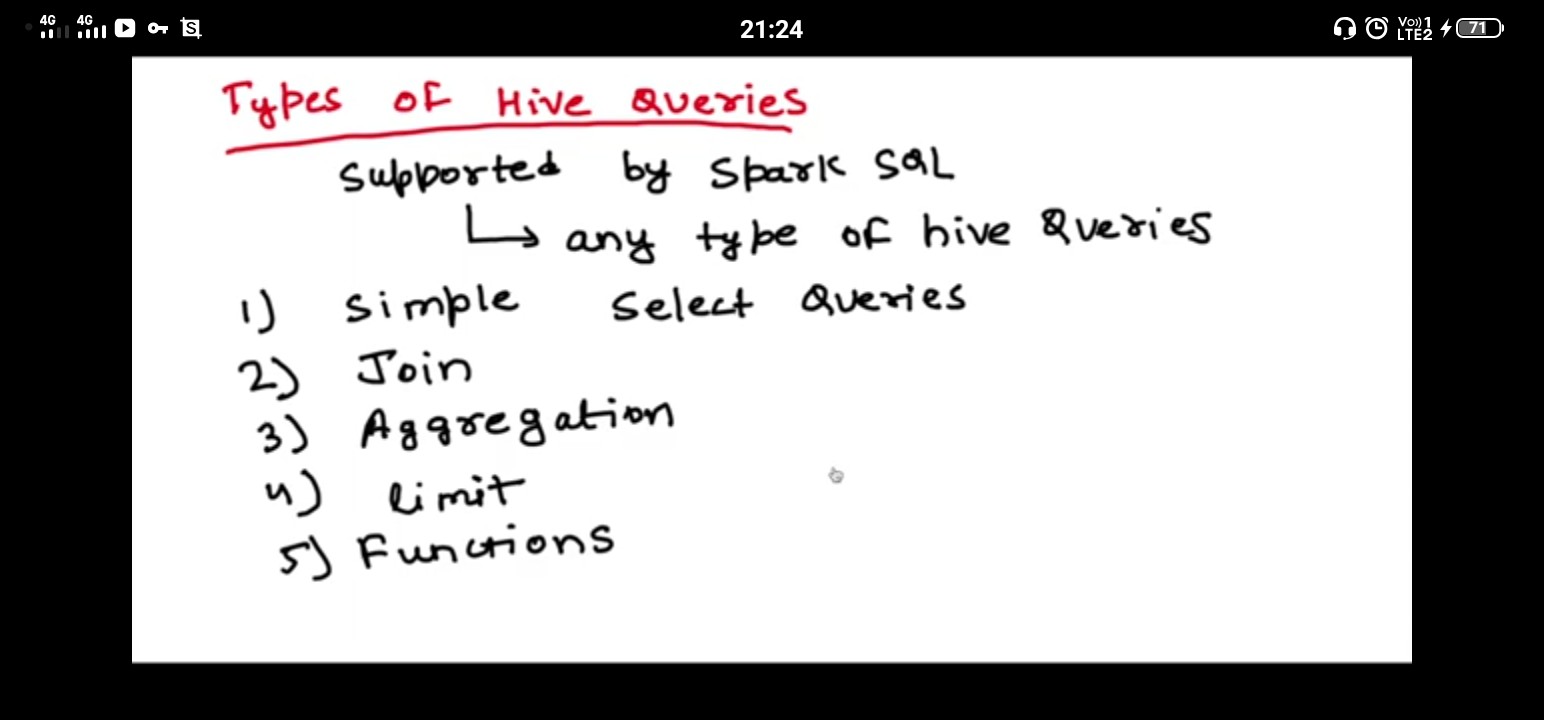 4G 4G 21:24 Vo)) 1 LTE2 71
Types of Hive Queries
Supported by Spark SQL
any type of hive Queries
1) Simple Select Queries
2) Join
3) Aggregation
4) limit
5) Functions